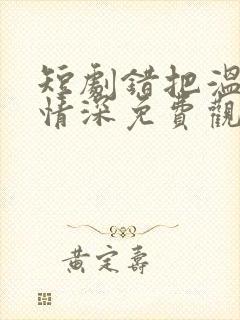 短劇錯把溫
情深免費觀
黃定壽